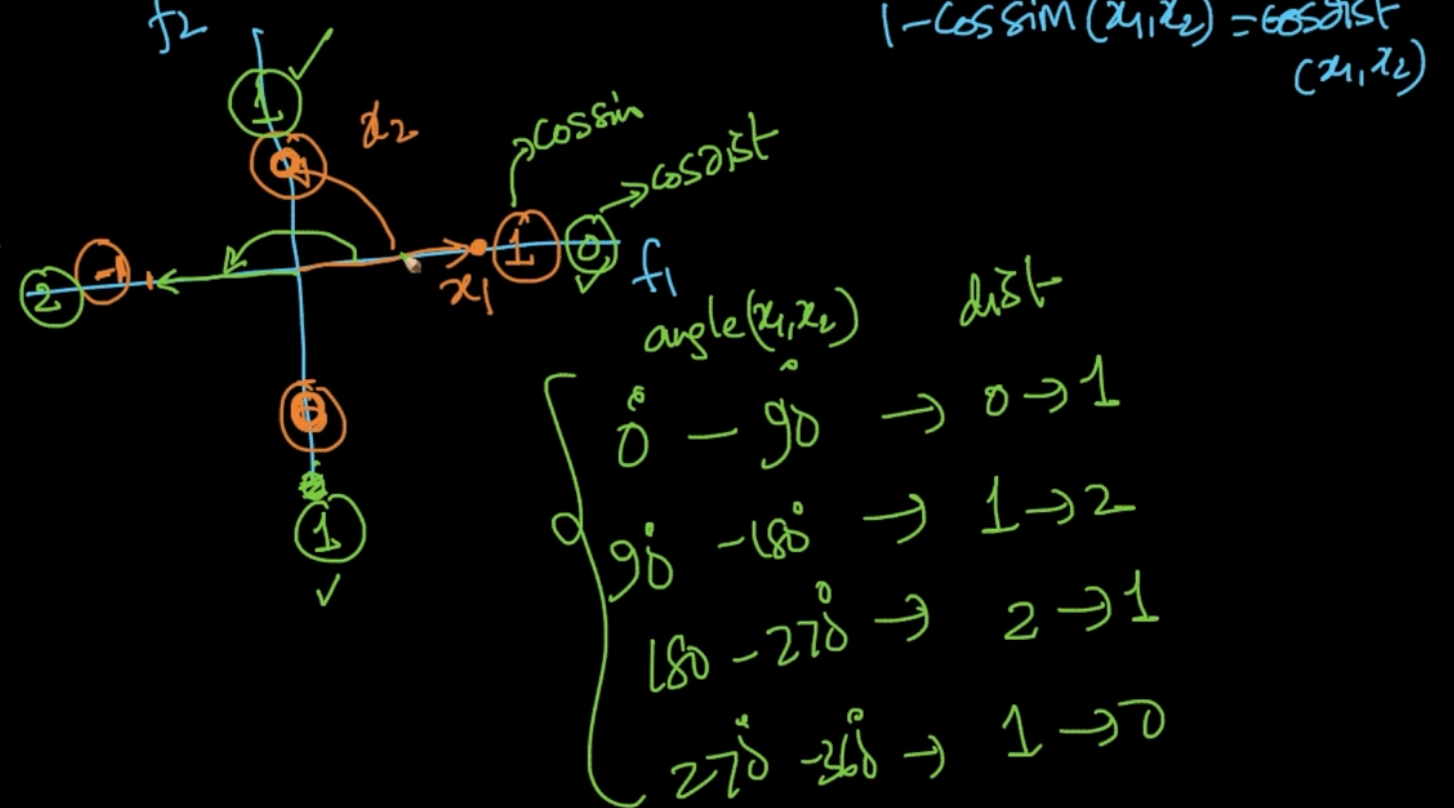 f2
1 - cossim (x1, x2) = cosdist
(x1, x2)
1
x2
0
cossim
cosdist
2
-1
1
0
x1
f1
angle(x1, x2) dist
0° - 90° → 0 → 1
0
1
90° - 180° → 1 → 2
180 - 270° → 2 → 1
270° - 360° → 1 → 0